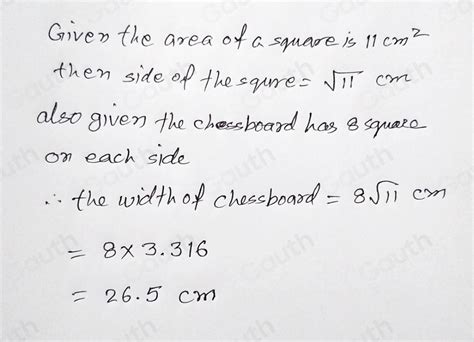 Given the area of a square is 11 cm²
then side of the squre = √11 cm
also given the chessboard has 8 square
on each side
∴ the width of chessboard = 8√11 cm
= 8 × 3.316
= 26.5 cm